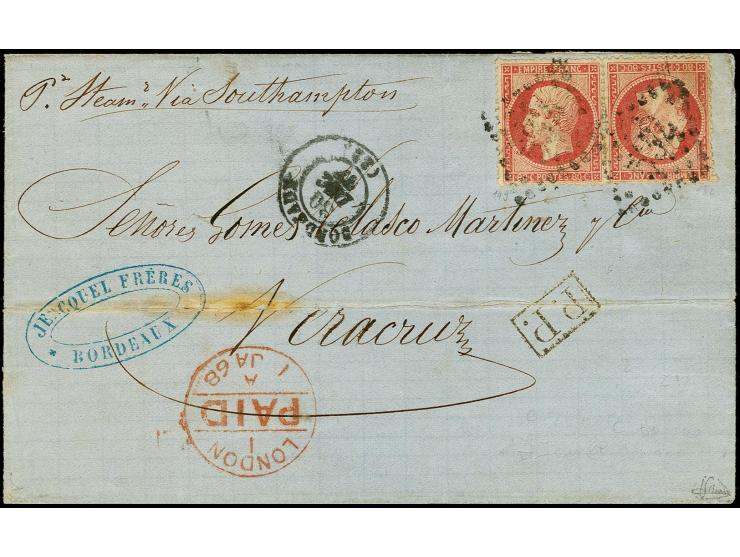 Pr Steamr Via Southampton
EMPIRE FRANC
80 C POSTES 80 C
80 C POSTES 80 C
EMPIRE FRANC
BORDEAUX (32)
30
Señores Gomez Velasco Martinez y Cia
JECQUEL FRÈRES
* BORDEAUX
Veracruz
P.P.
LONDON
1
PAID
A
1 JA 68